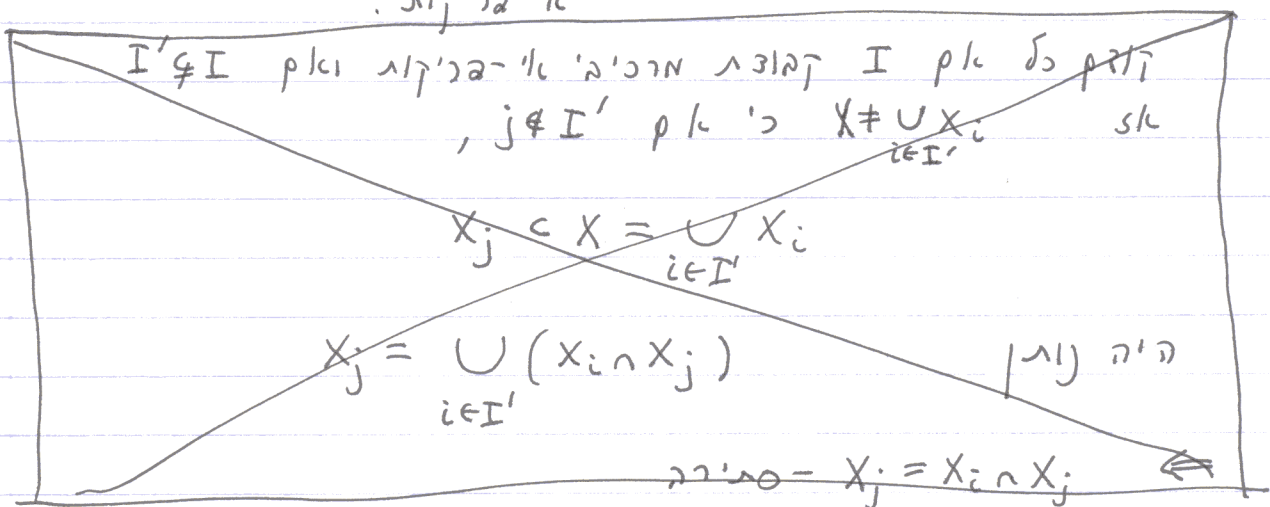 קודם כל אם I קבוצת מרכיבי אי-פריקות ואם I' ⊊ I
אז X ≠ ∪_{i∈I'} X_i כי אם j ∉ I',
X_j ⊂ X = ∪_{i∈I'} X_i
היה נותן X_j = ∪_{i∈I'} (X_i ∩ X_j)
⇐ X_j = X_i ∩ X_j – סתירה